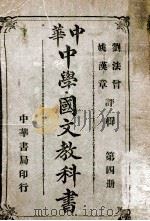 中華
劉法曾
姚漢章
評輯
第四冊
中學國文教科書
中華書局印行